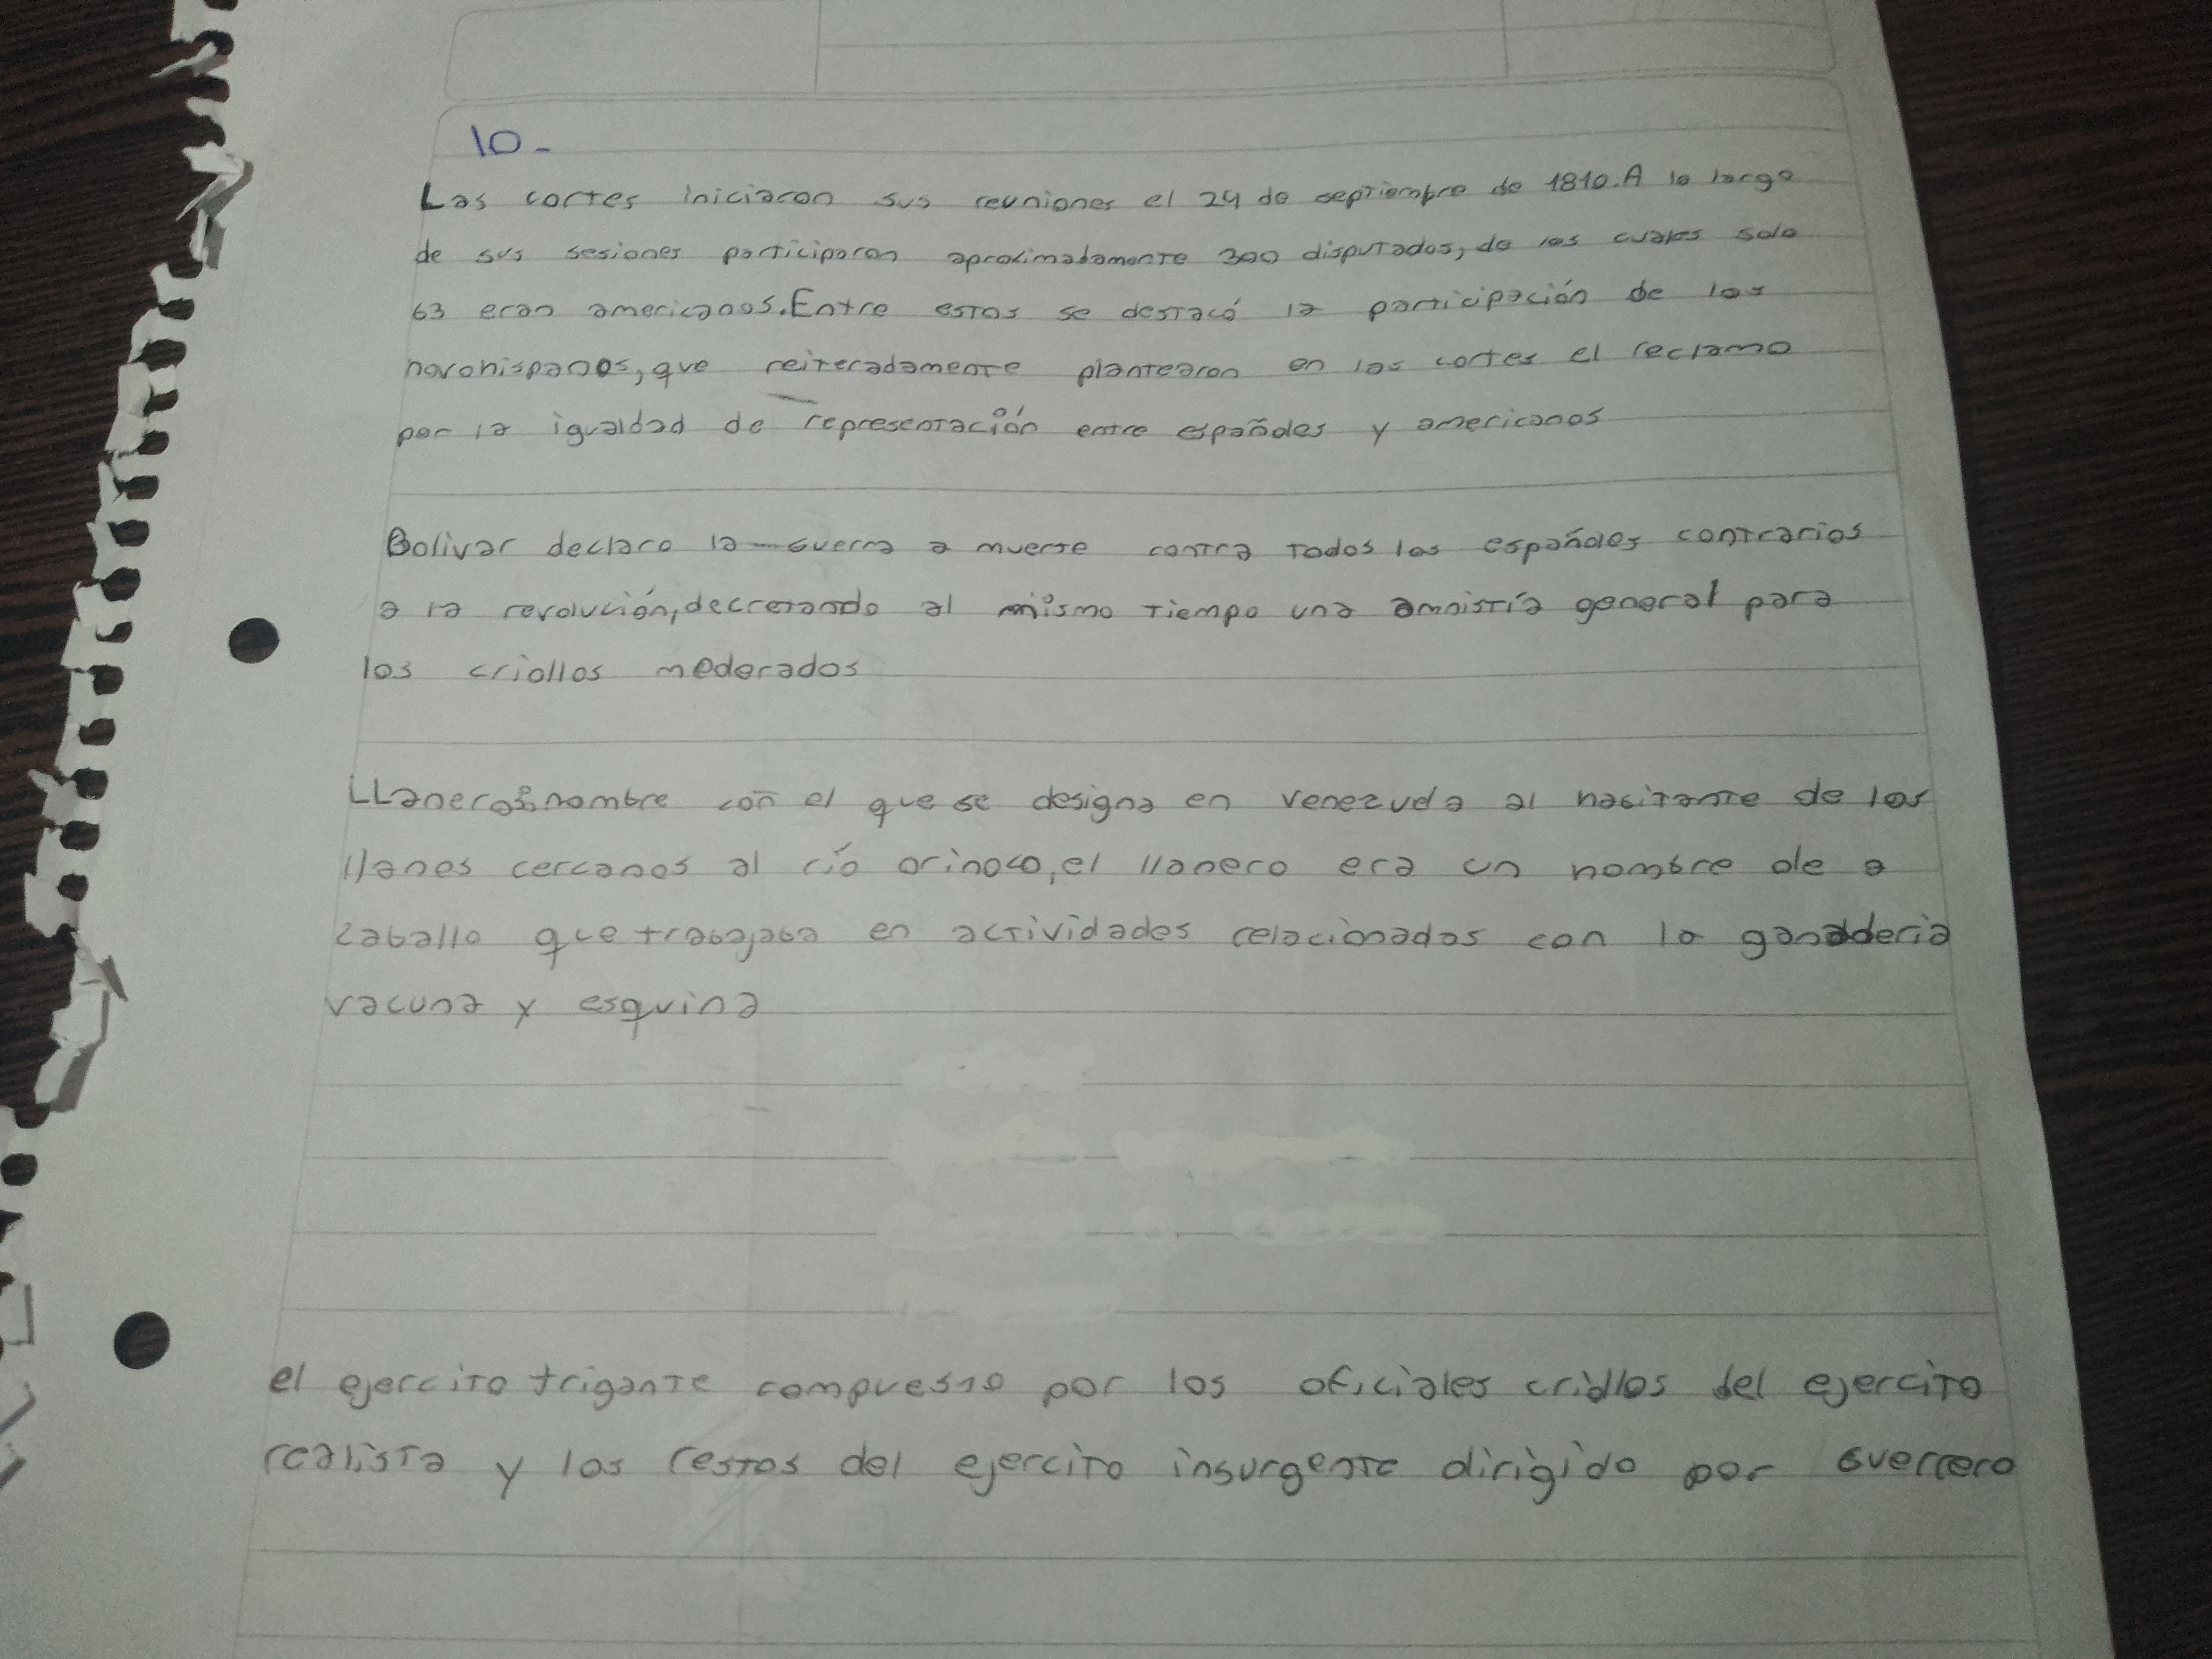 10-
Las cortes iniciaron sus reuniones el 24 de septiembre de 1810. A lo largo
de sus sesiones participaron aproximadamente 300 disputados, de los cuales solo
63 eran americanos. Entre estos se destacó la participación de los
novohispanos, que reiteradamente plantearon en las cortes el reclamo
por la igualdad de representación entre españoles y americanos
Bolivar declaro la guerra a muerte contra todos los españoles contrarios
a la revolución, decretando al mismo tiempo una amnistía general para
los criollos moderados
LLaneros: nombre con el que se designa en Venezuela al habitante de los
llanos cercanos al río orinoco, el llanero era un hombre de a
caballo que trabajaba en actividades relacionadas con la ganaderia
vacuna y esquina
el ejercito trigante compuesto por los oficiales criollos del ejercito
realista y los restos del ejercito insurgente dirigido por Guerrero